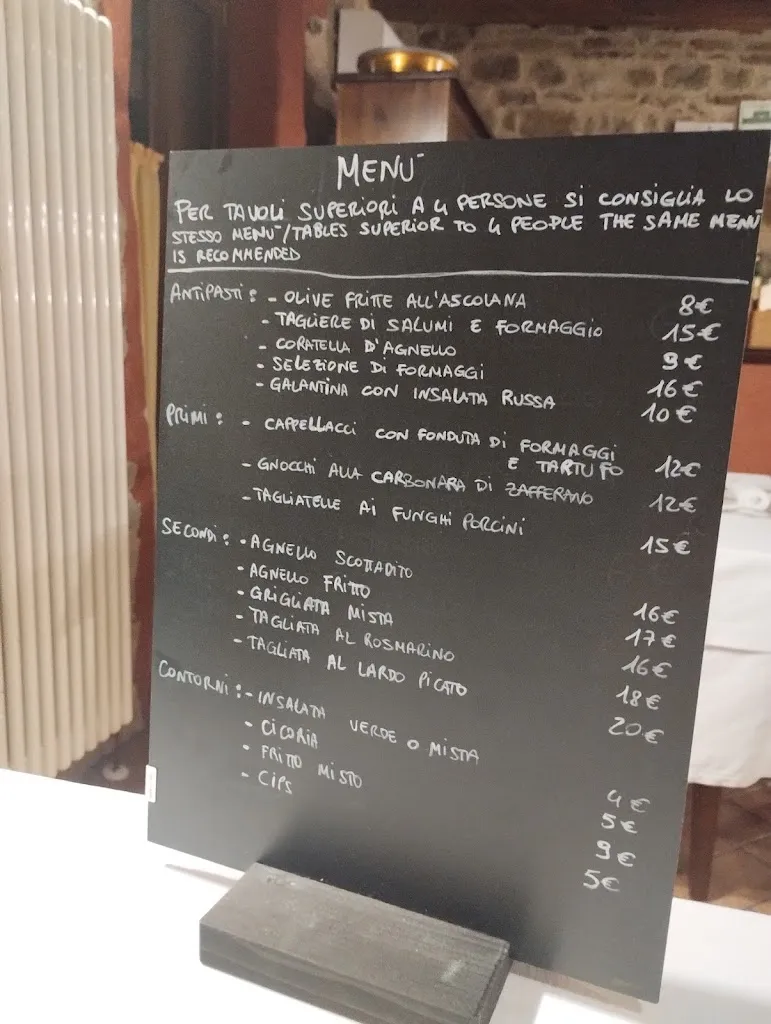 MENU
PER TAVOLI SUPERIORI A 4 PERSONE SI CONSIGLIA LO
STESSO MENU/TABLES SUPERIOR TO 4 PEOPLE THE SAME MENU
IS RECOMMENDED
ANTIPASTI: - OLIVE FRITTE ALL'ASCOLANA 8€
- TAGLIERE DI SALUMI E FORMAGGIO 15€
- CORATELLA D'AGNELLO 9€
- SELEZIONE DI FORMAGGI 16€
- GALANTINA CON INSALATA RUSSA 10€
PRIMI: - CAPPELLACCI CON FONDUTA DI FORMAGGI
E TARTUFO 12€
- GNOCCHI ALLA CARBONARA DI ZAFFERANO 12€
- TAGLIATELLE AI FUNGHI PORCINI 15€
SECONDI: - AGNELLO SCOTTADITO 16€
- AGNELLO FRITTO 17€
- GRIGLIATA MISTA 16€
- TAGLIATA AL ROSMARINO 18€
- TAGLIATA AL LARDO PICATO 20€
CONTORNI: - INSALATA VERDE O MISTA 4€
- CICORIA 5€
- FRITTO MISTO 9€
- CIPS 5€